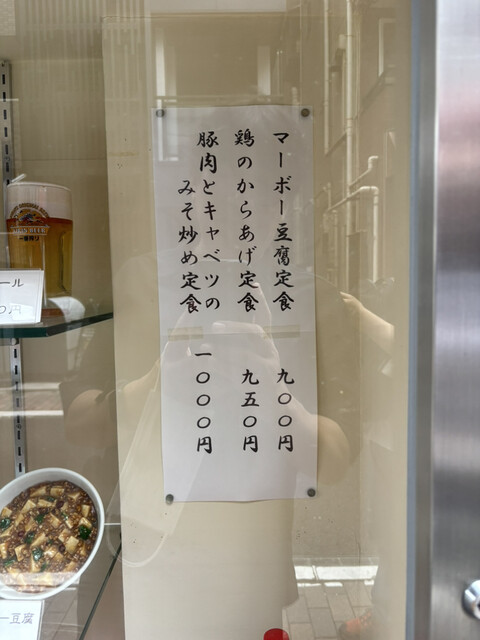 マーボー豆腐定食 九〇〇円
鶏のからあげ定食 九五〇円
豚肉とキャベツの
みそ炒め定食 一〇〇〇円
ール
円
一番搾り
ー豆腐